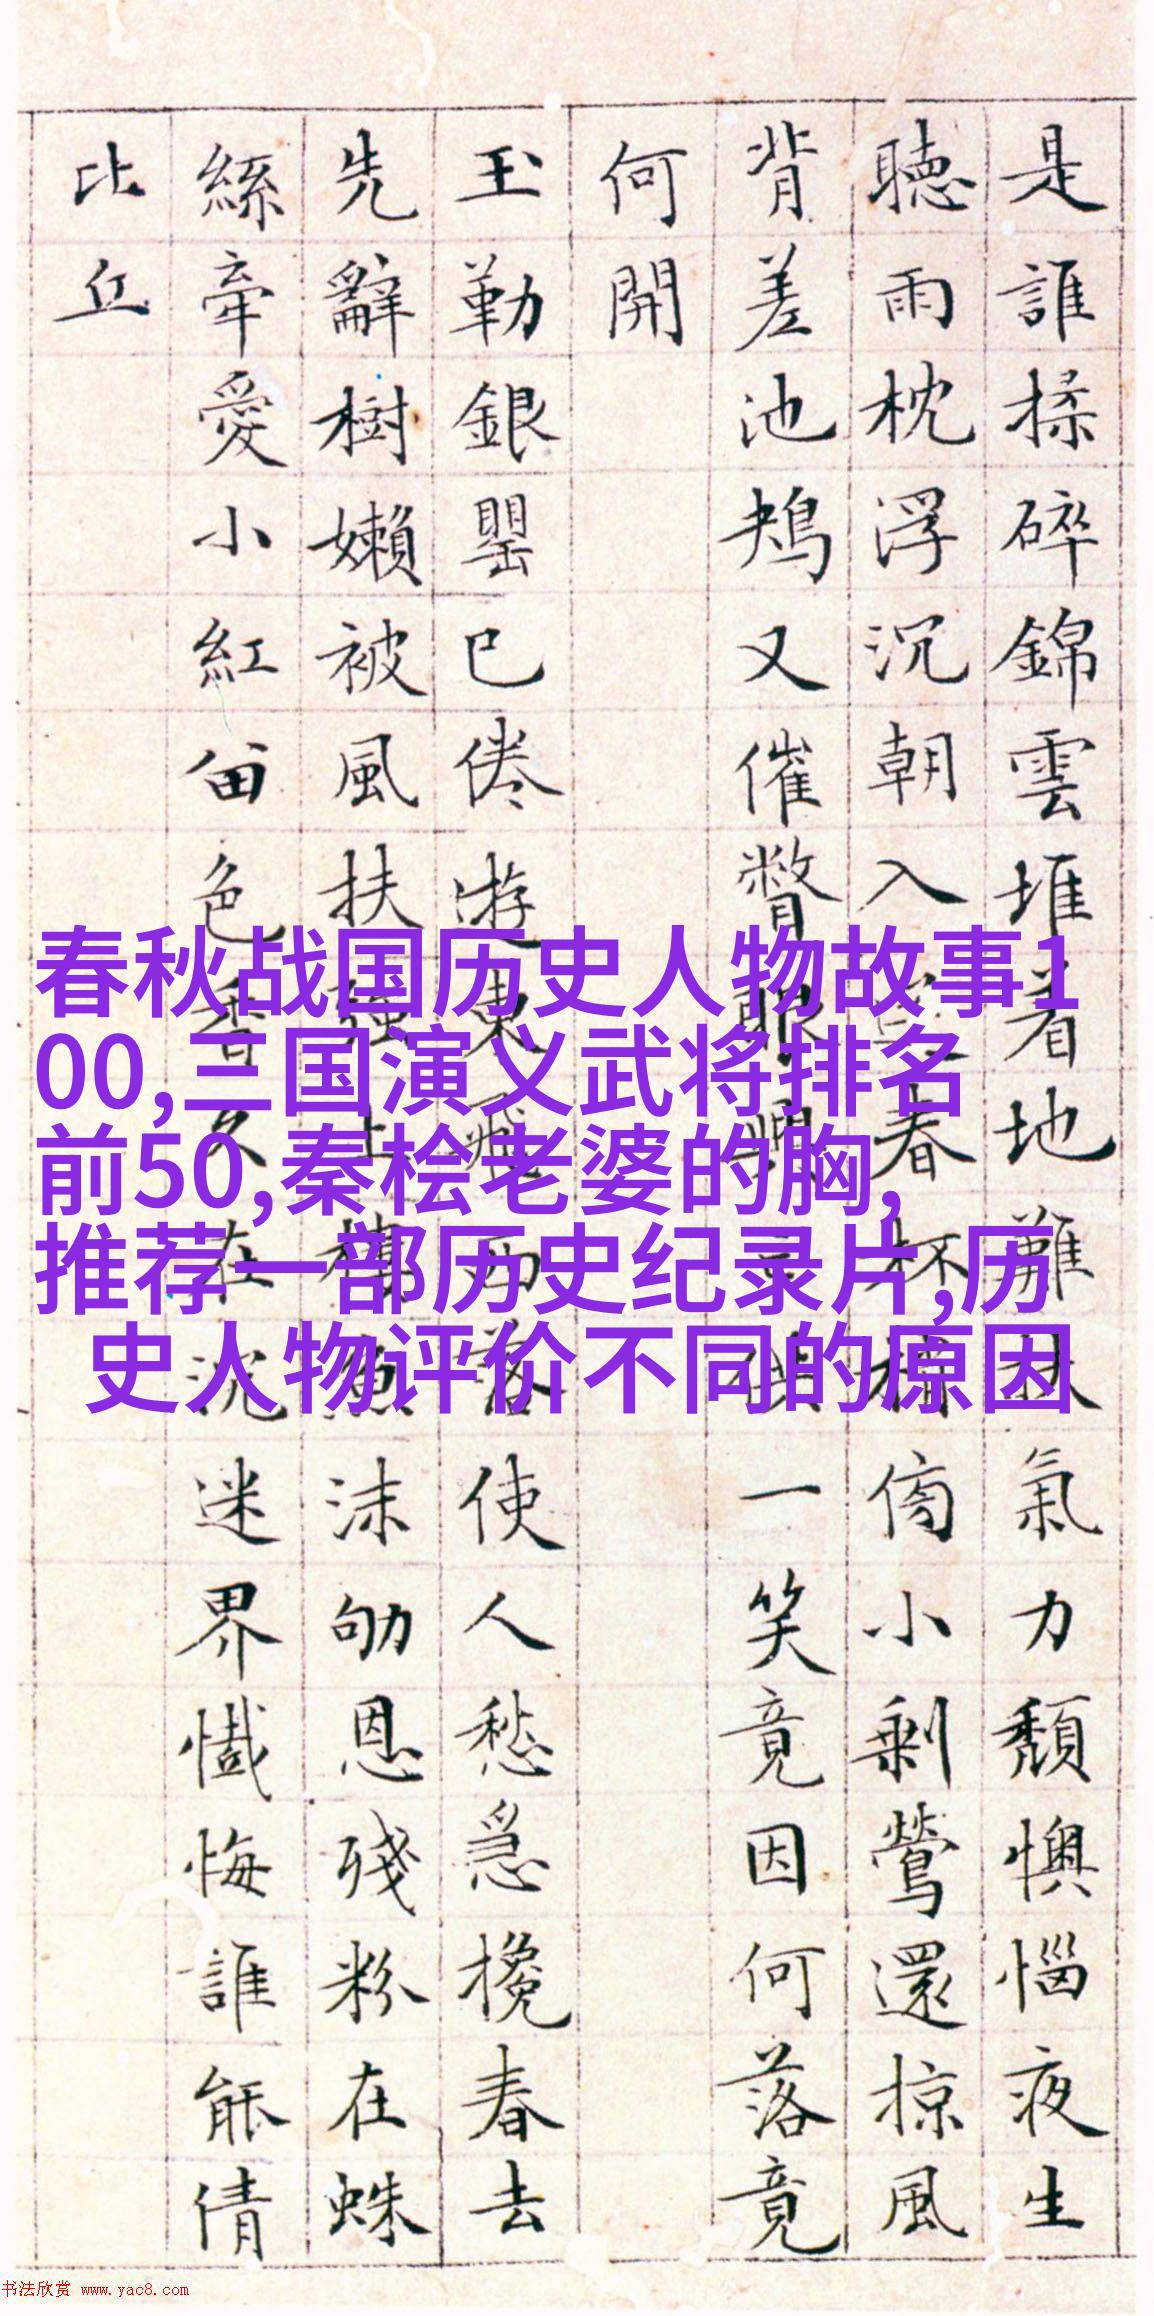 是誰揉碎錦雲堆着地難扶氣力頹懊惱夜生
聴雨枕浮沉朝入春杯傍小剩鶯還掠風
背差池鴂又催瞥眼興供一笑竟因何落竟
何開
玉勒銀罌已倦遊東飛西落使人愁急攙春去
先辭樹嬾被風扶強上樓魚沫劬恩殘粉在蛛
絲牽愛小紅留色香久在沉迷界懺悔誰能倩
比丘
春秋战国历史人物故事1
00,三国演义武将排名
前50,秦桧老婆的胸,
推荐一部历史纪录片,历
史人物评价不同的原因
书法欣赏 www.yac8.com